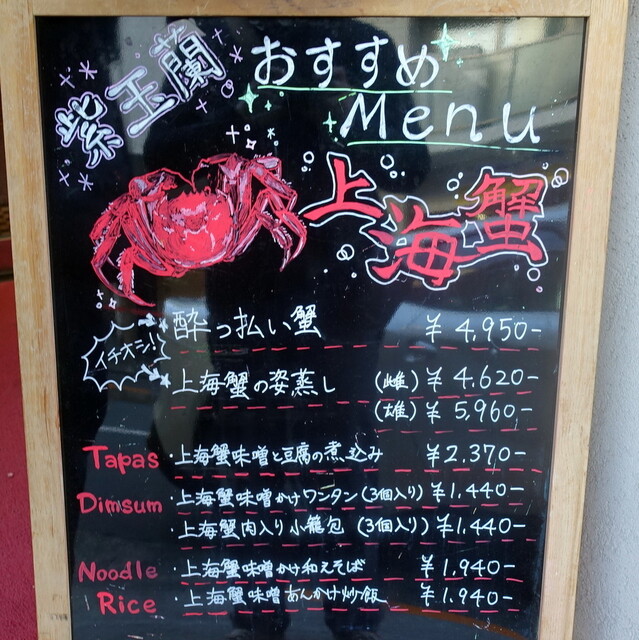 紫玉蘭
おすすめ
Menu
上海蟹
イチオシ!!
酔っ払い蟹 ¥4,950-
上海蟹の姿蒸し (雌) ¥4.620-
(雄) ¥5,960-
Tapas ・上海蟹味噌と豆腐の煮込み ¥2.370-
Dimsum ・上海蟹味噌かけワンタン(3個入り) ¥1.440-
・上海蟹肉入り小籠包 (3個入り) ¥1.440-
Noodle ・上海蟹味噌かけ和えそば ¥1,940-
Rice ・上海蟹味噌あんかけ炒飯 ¥1.940-